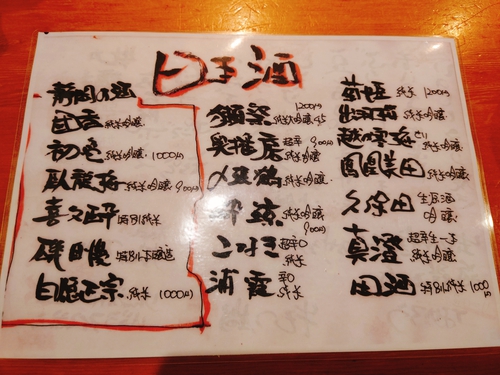 日本酒
静岡の酒
国香 純米吟醸
初亀 純米吟醸 1000円
臥龍梅 純米吟醸 900円
喜久酔 特別純米
磯自慢 特別本醸造
白隠正宗 純米 1000円
獺祭 純米大吟醸45 1200円
奥播磨 超辛 純米吟醸 900円
〆張鶴 純米吟醸
酔鯨 純米吟醸 900円
超辛口 純米
浦霞 辛口 純米
菊姫 純米 1200円
出羽桜 純米吟醸
越乃寒梅 純米吟醸
鳳凰美田 純米吟醸
久保田 吟醸
真澄 超辛生一本 純米吟醸
田酒 特別純米 1000円